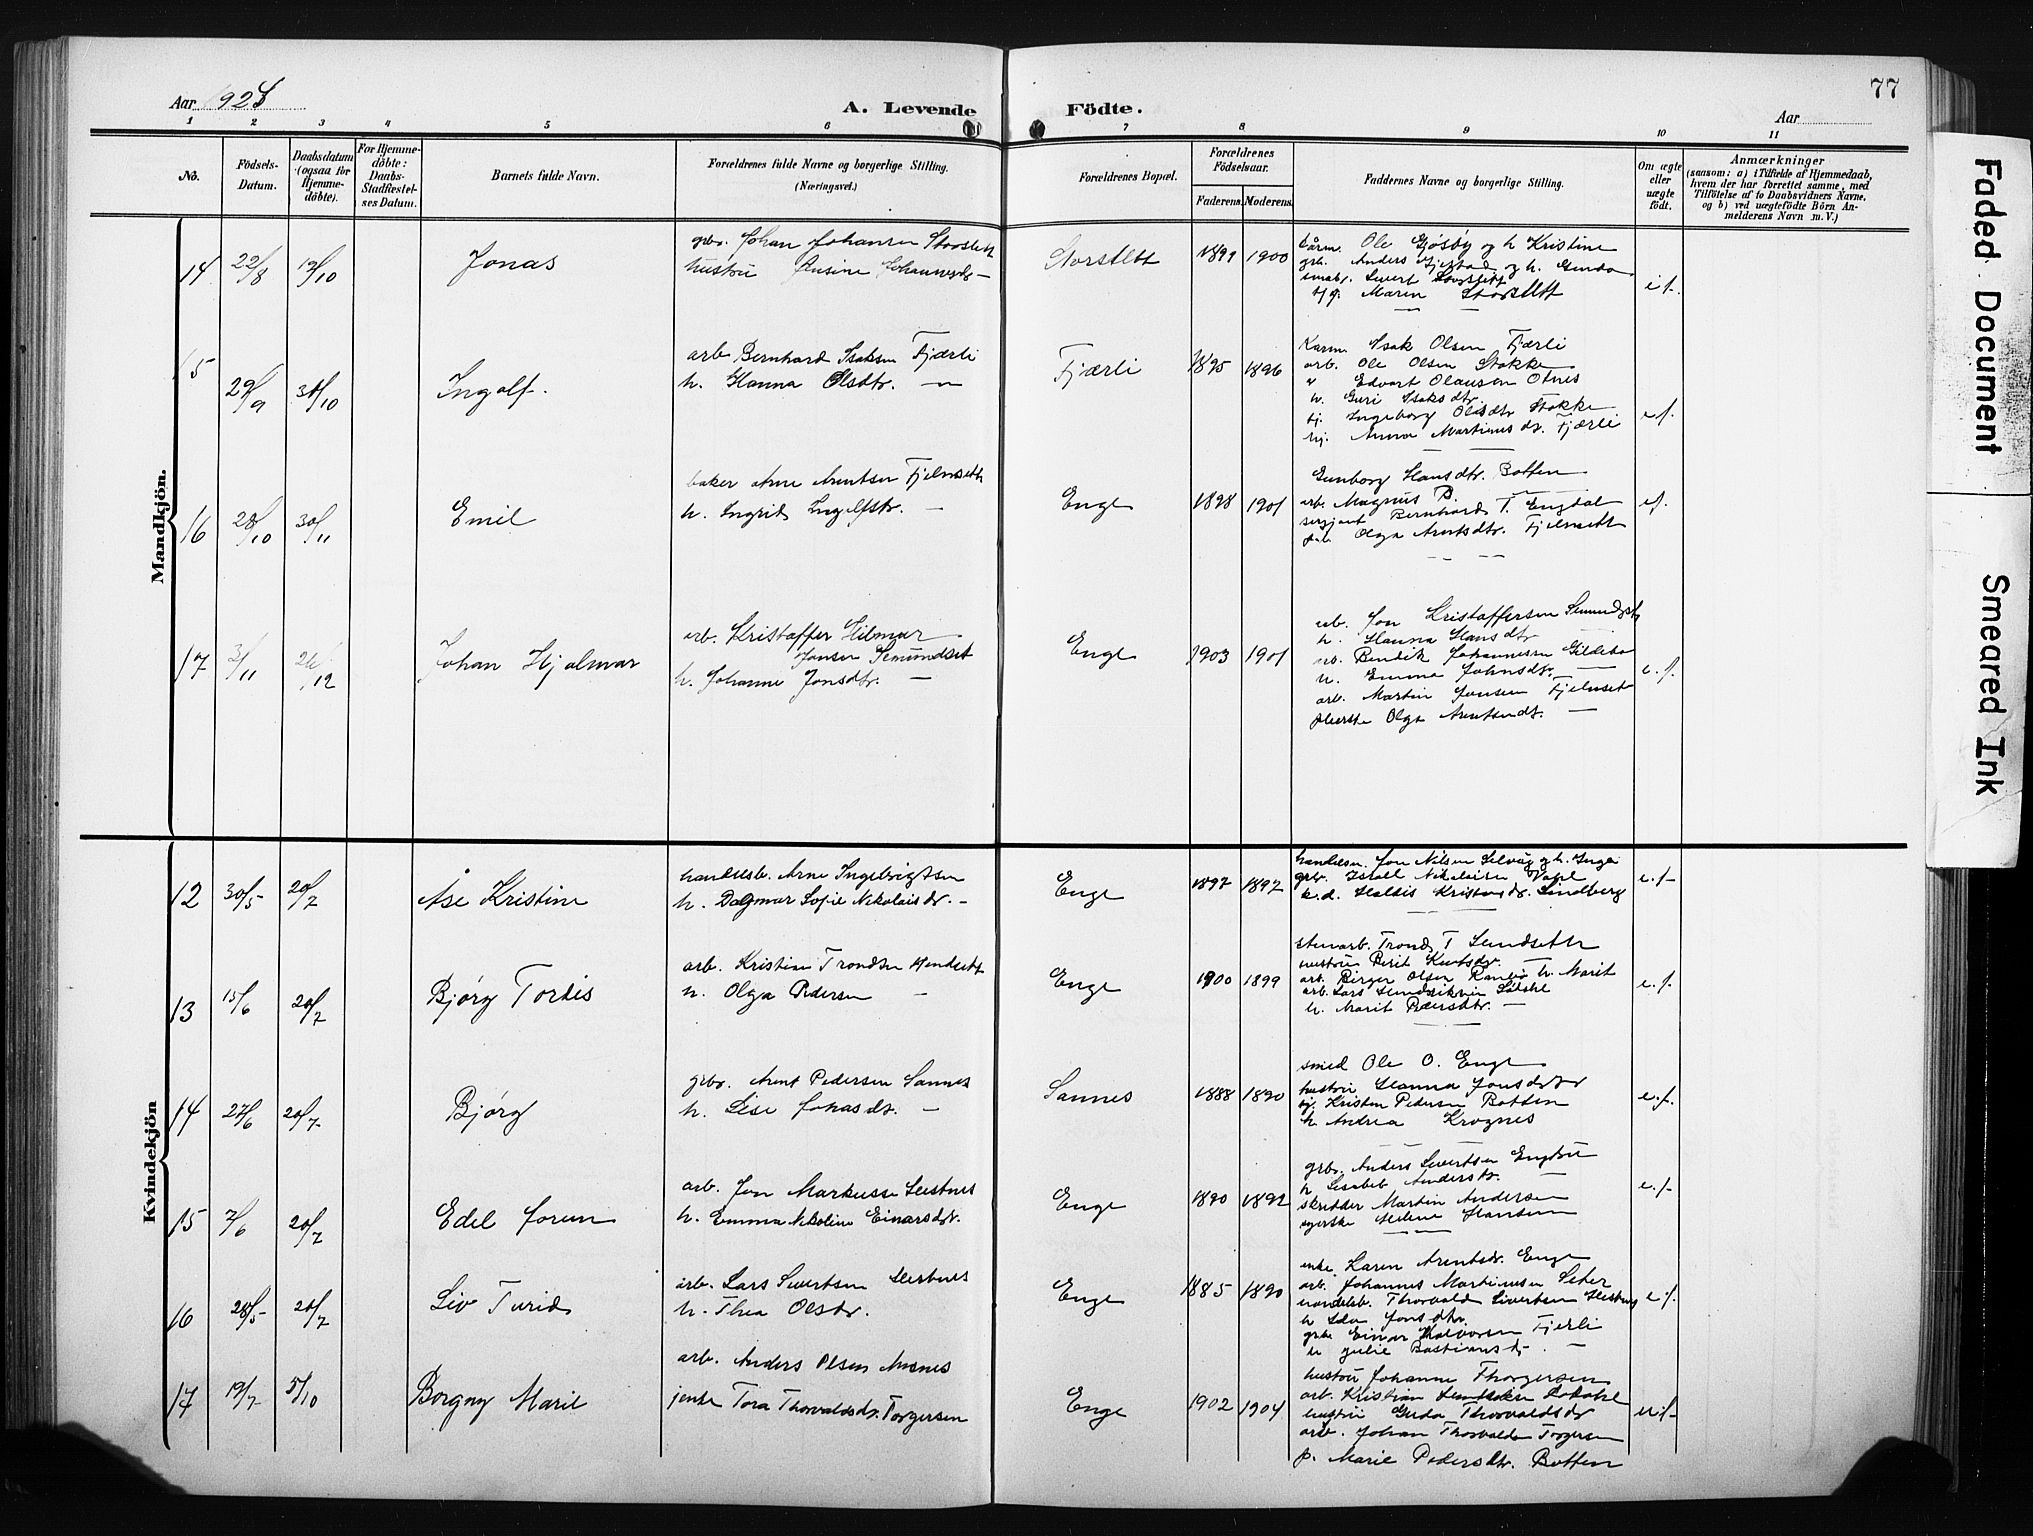 77
Aar 1924
A. Levende Födte.
Aar
1 2 3 4 5 6 7 8 9 10 11
No.
Födsels-Datum.
Daabsdatum (ogsaa för Hjemmedöbte).
For Hjemmedöbte: Daabs-Stadfæstelses Datum.
Barnets fulde Navn.
Forældrenes fulde Navne og borgerlige Stilling.
(Næringsvei.)
Forældrenes Bopæl.
Forældrenes Födselsaar.
Faderens. Moderens.
Faddernes Navne og borgerlige Stilling.
Om ægte eller uægte födt.
Anmærkninger
(saasom: a) i Tilfælde af Hjemmedaab,
hvem der har forrettet samme, med
Tilföielse af to Daabsvidners Navne,
og b) ved uægtefödte Börn An-
melderens Navn m. V.)
Mandkjön.
14 22/8 19/10 Jonas
gbr. Johan Johansen Storslett
hustru Ansine Johannesdr —
Storslett 1899 1900
Ole Gjøsby og h. Kristine
gbr. Anders og h. Gurda
Sivert Storslett
Maren Storslett
15 29/9 Ingolf.
arb Bernhard Isaksen Fjærli
h. Hanna Olsdtr. — "
Fjærli 1895 1896
Karm. Isak Olsen Fjærli
arb. Ole Olsen Stokke
" Edvart Olausen Otnes
h. Guri Isaksdtr.
tj. Ingeborg Olsdtr Stokke
tj. Anna Martinusdr. Fjærli
e.f.
16 28/10 30/11 Emil
baker Arne Arentsen Fjelnseth
h. Ingrid Ingolfsdr. —
Enge 1898 1901
Gunborg Hansdtr. Botten
arb. Magnus B.
sersjant Bernhard T. Engdal
Olga Arentsdtr. Fjelnsett
e.f.
17 3/11 26/12 Johan Hjalmar
arb. Kristoffer Hilmar
Jonsen Semundset
h. Johanne Jonsdtr. —
Enge 1903 1901
arb. Jon Kristoffersen Semundset
h. Hanna Hansdtr —
arb. Bendik Johannesen Gildebo
h. Emma Johnsdtr. —
arb. Martin Jonsen Fjelnset
Olga Arentsendt. —
e.f.
Kvindekjön
12 30/5 20/7 Åse Kristine
handelsb. Arne Ingebrigtsen
h. Dagmar Sofie Nikolaisdr. —
Enge 1897 1897
handelsm. Jon Nilsen Selvåg og h. Inga
gbr. Israel Nikolaisen Vaagl
k.d. Haldis Kristensdr. Lindberg
e.f.
13 15/6 20/7 Bjørg Tordis
arb. Kristian Trondsen Hendset
h. Olga Pedersen —
Enge 1900 1899
stenarb. Trond T Hendseth
hustru Berit Knutsdr. —
arb. Birger Olsen Ranheim h. Marit
arb. Lars
h. Marit Pedersdtr. —
e.f.
14 27/6 20/7 Bjørg
gbr. Arnt Pedersen Sannes
h. Lise Johasdr. —
Sannes 1888 1890
smed Ole O. Enge
hustru Hanna Jonsdtr
tj. Kristen Pedersen Botten
h. Andrea Krognes
e.f.
15 7/6 20/7 Edel Jorun
arb. Jon Markussen Hestnes
h. Emma Nikoline Einarsdr.
Enge 1890 1892
gbr. Anders Sivertsen Engdal
h Lisabet Andersdr. —
skredder Martin Andersen
syerske Helene Hansen
e.f.
16 28/5 20/7 Liv Turid
arb. Lars Sivertsen Hestnes
h. Thea Olsdr.
Enge 1885 1890
enke Karen Arentsdr. Enge
arb. Johannes Martinusen Seter
handelsb. Thorvald Sivertsen Hestnes
h Ida Jonsdtr.
gbr. Einar Halvorsen Fjerli
h Julie Bastiansdr. —
e.f.
17 19/7 5/10 Borgny Marie
arb. Anders Olsen Ansnes
jente Tora Thorvaldsdr. Torgersen
Enge 1902 1904
hustru Johanne Thorgersen
arb. Kristian
hustru Gurda Thorvaldsdr
arb. Johan Thorvaldsen Torgersen
p. Marie Pedersdtr. Botten
u.f.
Faded Document
Smeared Ink